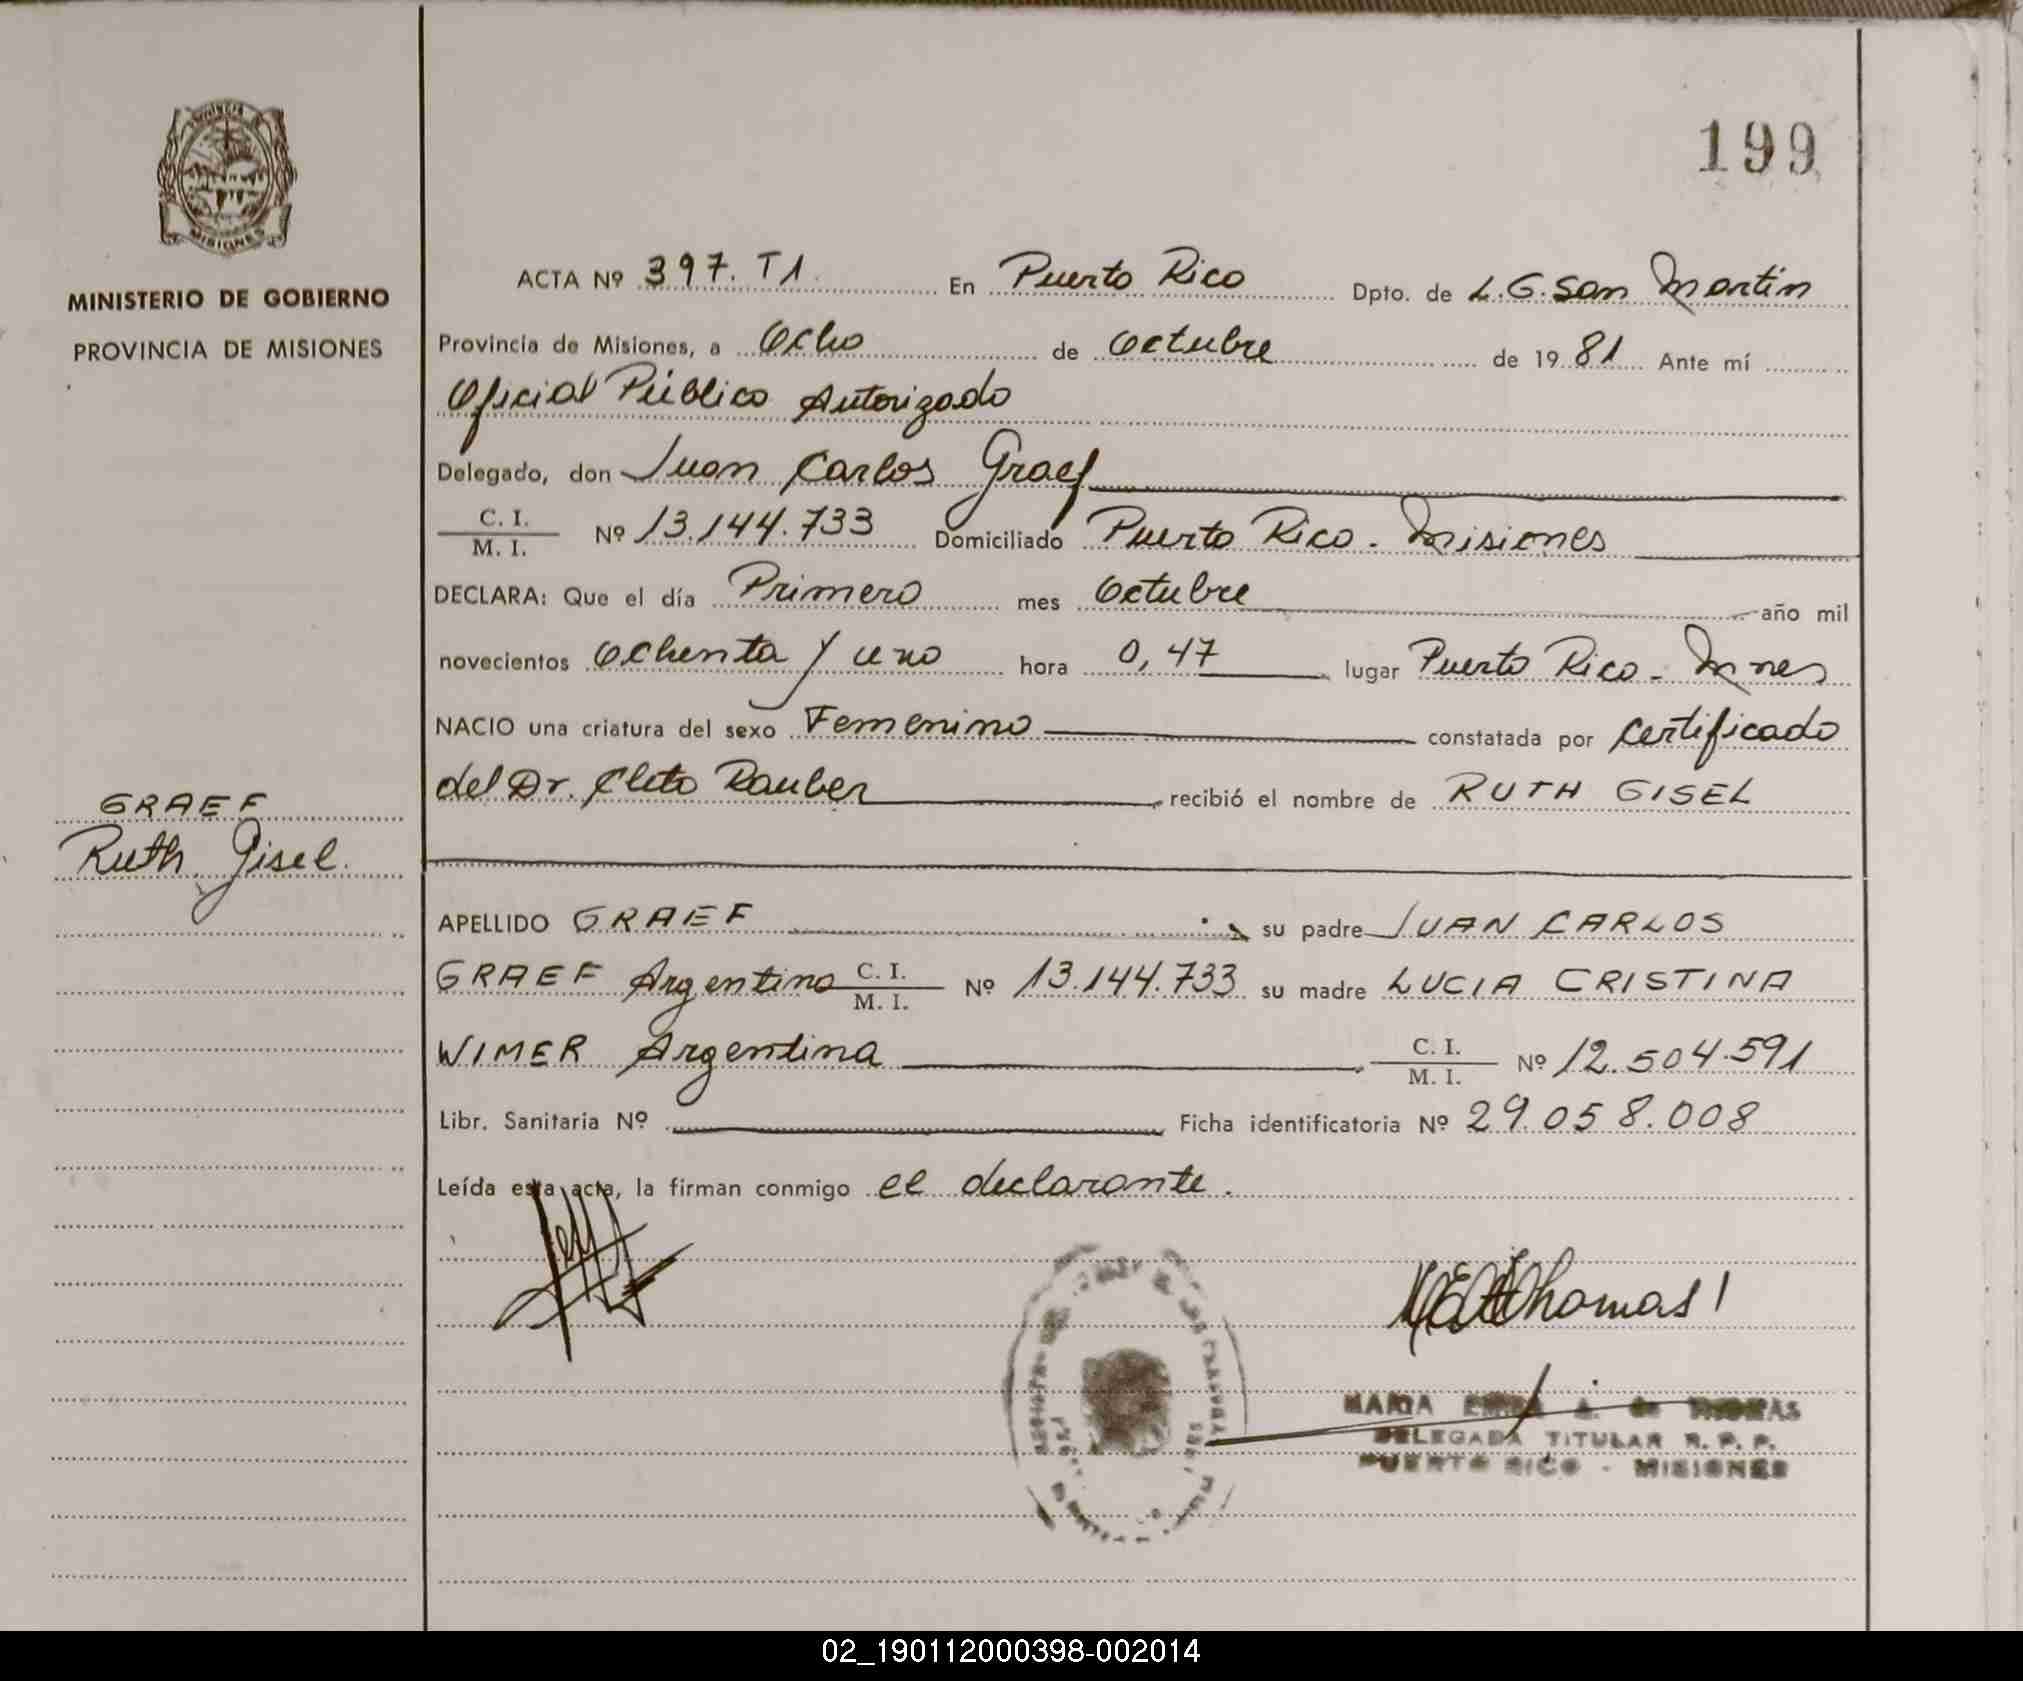 199
PROVINCIA DE
MISIONES
MINISTERIO DE GOBIERNO
PROVINCIA DE MISIONES
GRAEF
Ruth Gisel.
ACTA Nº 397. T1. En Puerto Rico Dpto. de L.G. San Martin
Provincia de Misiones, a Ocho de Octubre de 19 81 Ante mí
Oficial Público Autorizado
Delegado, don Juan Carlos Graef
C. I. / M. I. Nº 13.144.733 Domiciliado Puerto Rico - Misiones
DECLARA: Que el día Primero mes Octubre año mil
novecientos Ochenta y uno hora 0,47 lugar Puerto Rico - Mnes
NACIO una criatura del sexo Femenino constatada por certificado
del Dr. Cleto Rauber recibió el nombre de RUTH GISEL
APELLIDO GRAEF su padre JUAN CARLOS
GRAEF Argentino C. I. / M. I. Nº 13.144.733 su madre LUCIA CRISTINA
WIMER Argentina C. I. / M. I. Nº 12.504.591
Libr. Sanitaria Nº Ficha identificatoria Nº 29.058.008
Leída esta acta, la firman conmigo el declarante.
Thomas
MARIA EMMA A. de THOMAS
DELEGADA TITULAR R. P. P.
PUERTO RICO - MISIONES
02_190112000398-002014